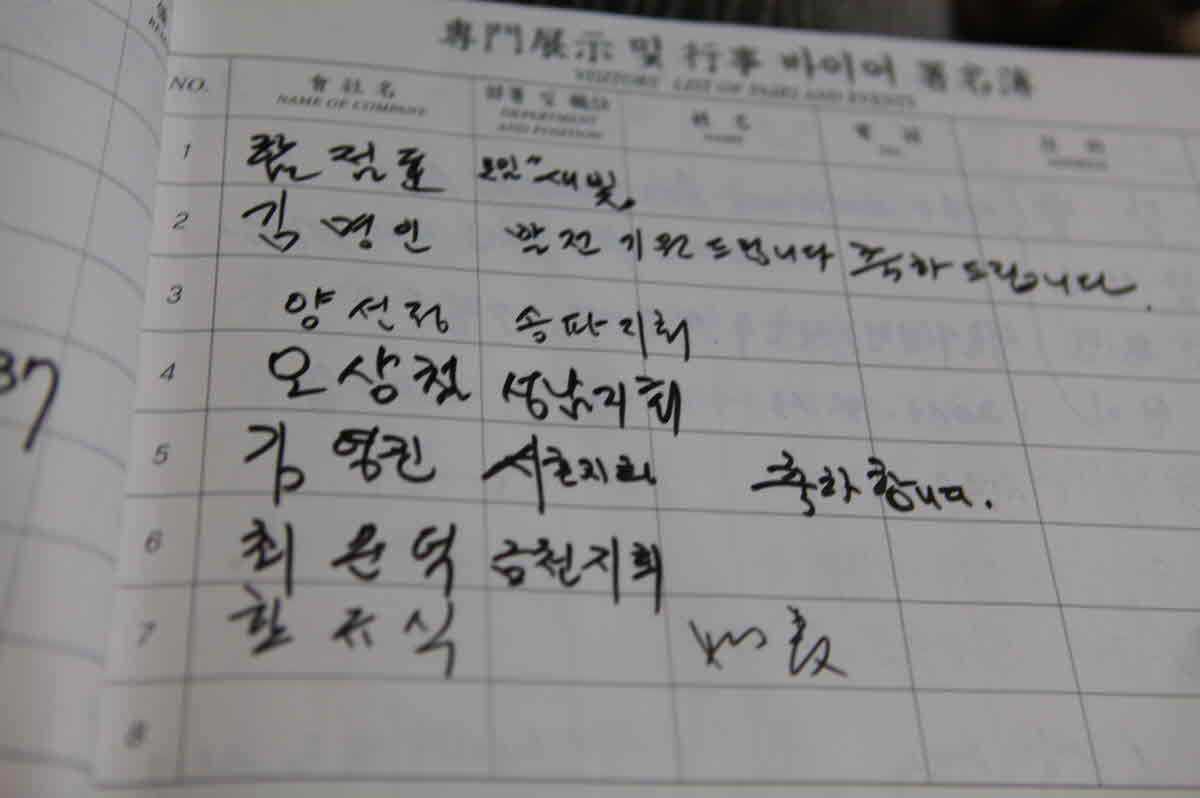 專門展示 및 行事 바이어 署名簿
VISITORS LIST OF FAIRS AND EVENTS
NO. 會社名 部署 및 職位 姓名
NAME OF COMPANY DEPARTMENT AND POSITION NAME
1 점표 모임 "새빛"
2 김명인 발전 기원드립니다 축하드립니다.
3 양선정 송파지회
4 오상철 성남지회
5 김영진 서초지회 축하합니다.
6 최윤덕 금천지회
7 한규식
8
37